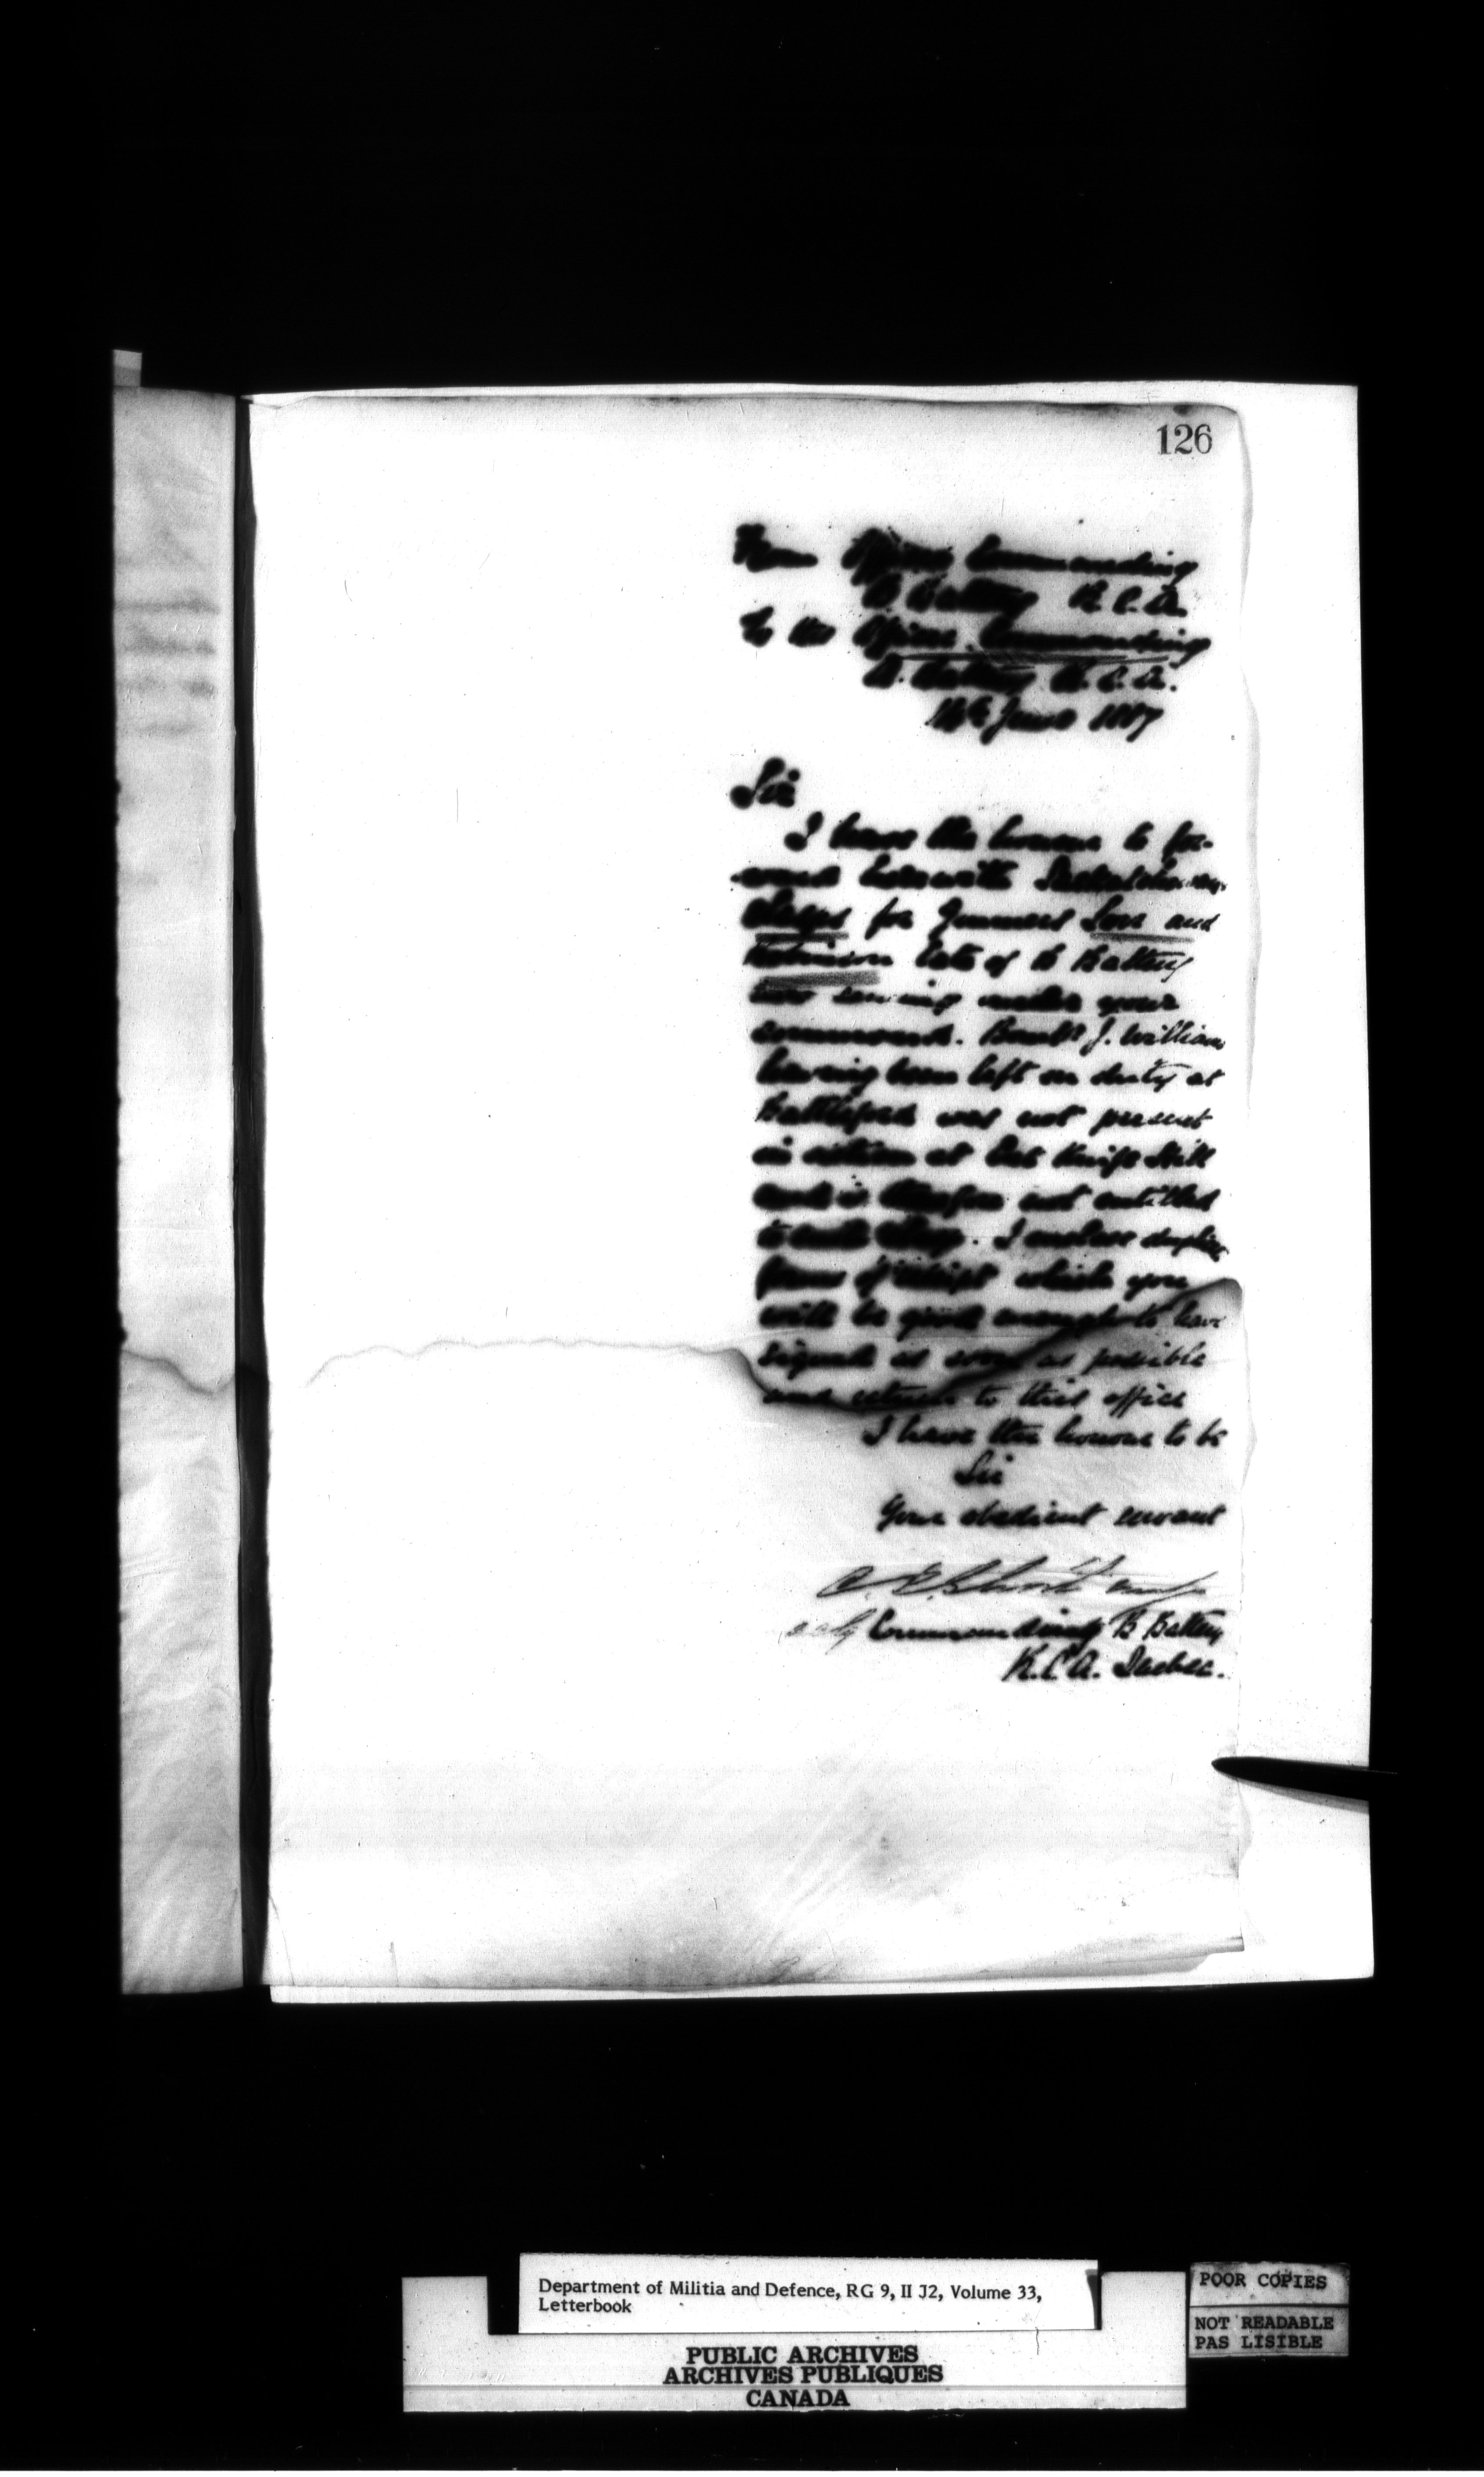 126
From Officer Commanding
B. Battery R.C.A.
To the Officer Commanding
Battery R.C.A.
June 1887
Sir
I have the honour to for-
ward herewith Saskatchewan
Clasps for Gunners and
Robinson late of B Battery
now serving under your
command. Bomb J. William
having been left on duty at
Battleford was not present
in action at Cut Knife Hill
and is therefore not entitled
to such Clasp. I enclose
forms of receipt which you
will be good enough to have
signed as soon as possible
and return to this office
I have the honour to be
Sir
Your obedient servant
C. E. Short
Commanding B Battery
R.C.A. Quebec.
Department of Militia and Defence, RG 9, II J2, Volume 33,
Letterbook
PUBLIC ARCHIVES
ARCHIVES PUBLIQUES
CANADA
POOR COPIES
NOT READABLE
PAS LISIBLE